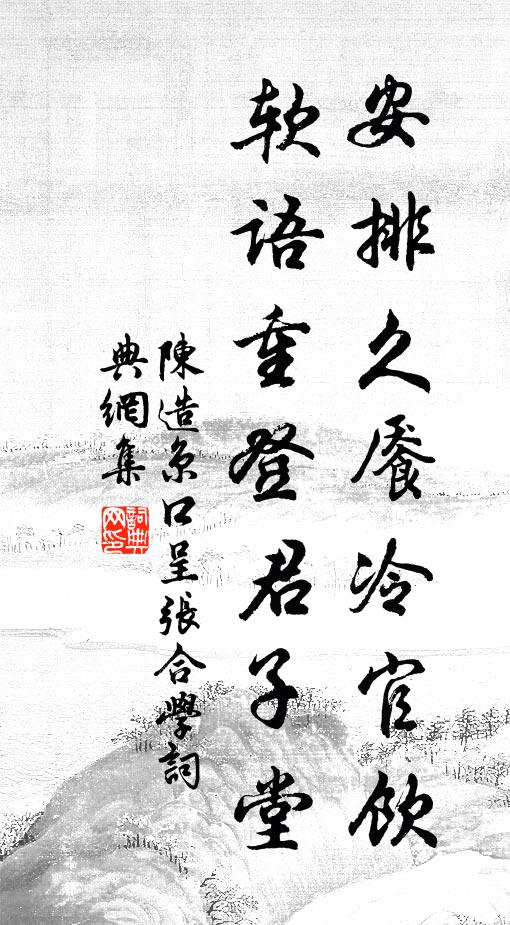 安排久饜冷官飲
軟語重登君子堂
陳造京口呈張合學詞
典網集
詞典网印